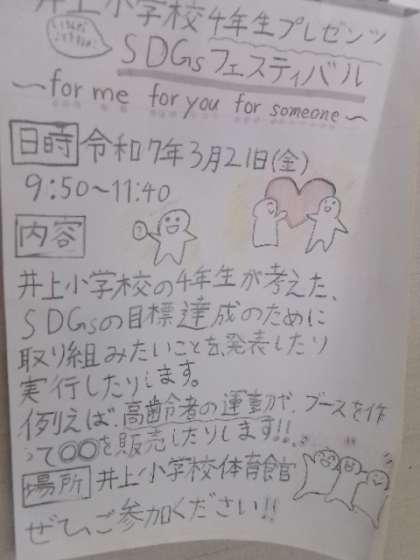 井上小学校4年生プレゼンツ
SDGsフェスティバル
〜for me for you for someone〜
日時 令和7年3月21日(金)
9:50〜11:40
内容
井上小学校の4年生が考えた、
SDGsの目標達成のために
取り組みたいことを、発表したり
実行したりします。
例えば、高齢者の運動や、ブースを作
って〇〇を販売したりします!!
場所 井上小学校体育館
ぜひ、ご参加ください!!